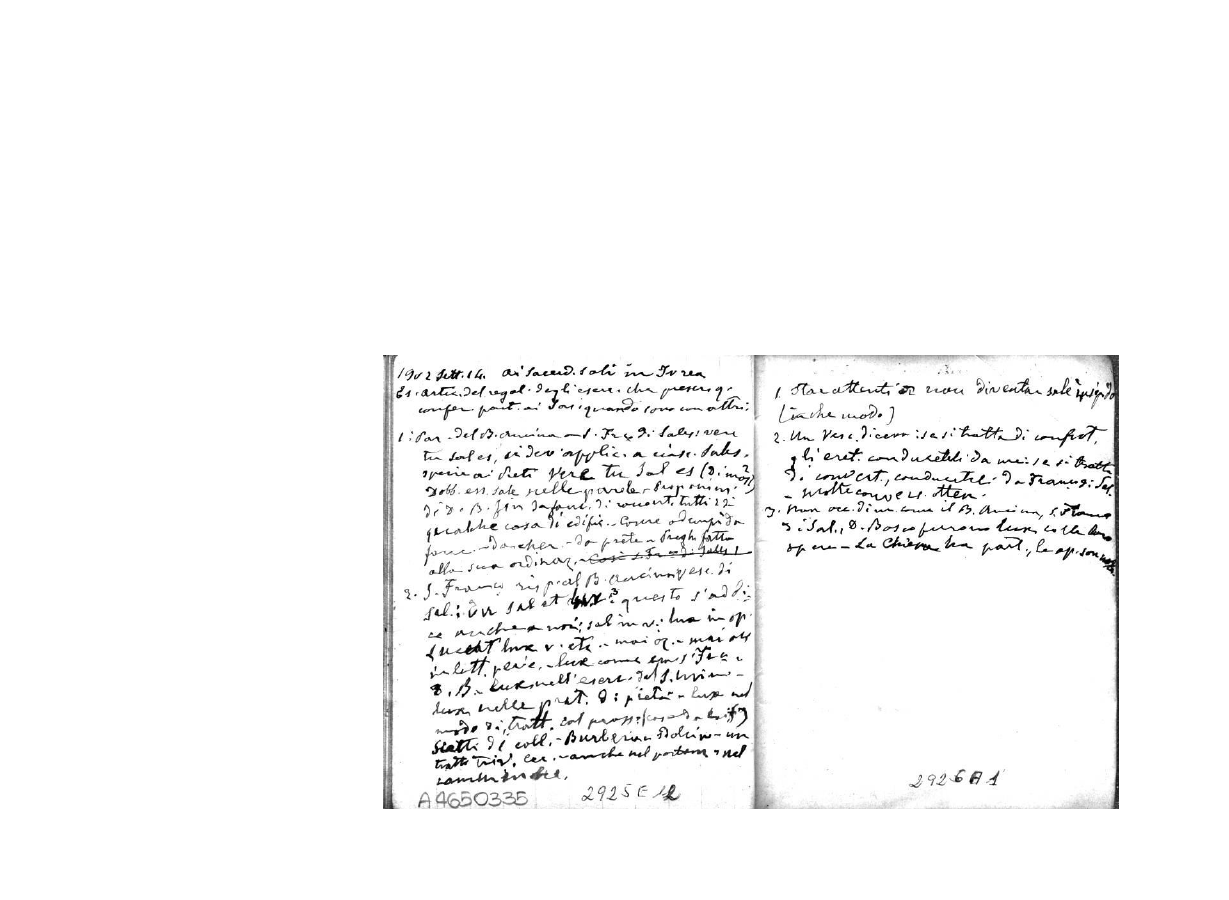 1902 Sett. 14. Ai Sacerd. soli in Ivrea
Es. artic. del regol. degli eserc. che prescriv.
confer. part. ai Sac. quando sono con altri.
1: Par. del B. Ancina a S. Fr. di Sales: vere
tu sal es, si dev'applic. a ciasc. Sales.
specie ai Preti Vere tu Sal es
dobb. ess. sale nelle parole
di D. B. fin da fanc. di raccont. tutti
qualche cosa di edific. - Come
da cher. - da prete - Pregh. fatta
alla sua ordinaz. - Così S. Fr. di Sales
2. S. Franc. risp. al B. Ancina vesc. di
Sal.: Tu sal et lux: questo s'addi-
ce anche a noi; sal in v. lux in op.
Luceat lux v. etc. - mai oz. - mai
in lett. peric. - lux come era S. Fr. -
D. B. - lux nell'eserc. del S. Minis -
lux nelle prat. di pietà - lux nel
modo di tratt. col pross.
tratti di coll. - - un
tratto triv. - anche nel portam. nel
A4650335
2925 E 12
1. Star attenti a non diventar sale insipido
(in che modo)
2. Un Vesc. diceva: se si tratta di confut.
gli eret. conduceteli da me: se si tratta
di convert., conducetel. da Franc. di Sal.
- molte convers. otten.
3. Non occ. dir come il B. Ancina, S.
di Sal., D. Bosco furono lux colle loro
opere - La Chiesa ha part., le op. son
2926 A 1